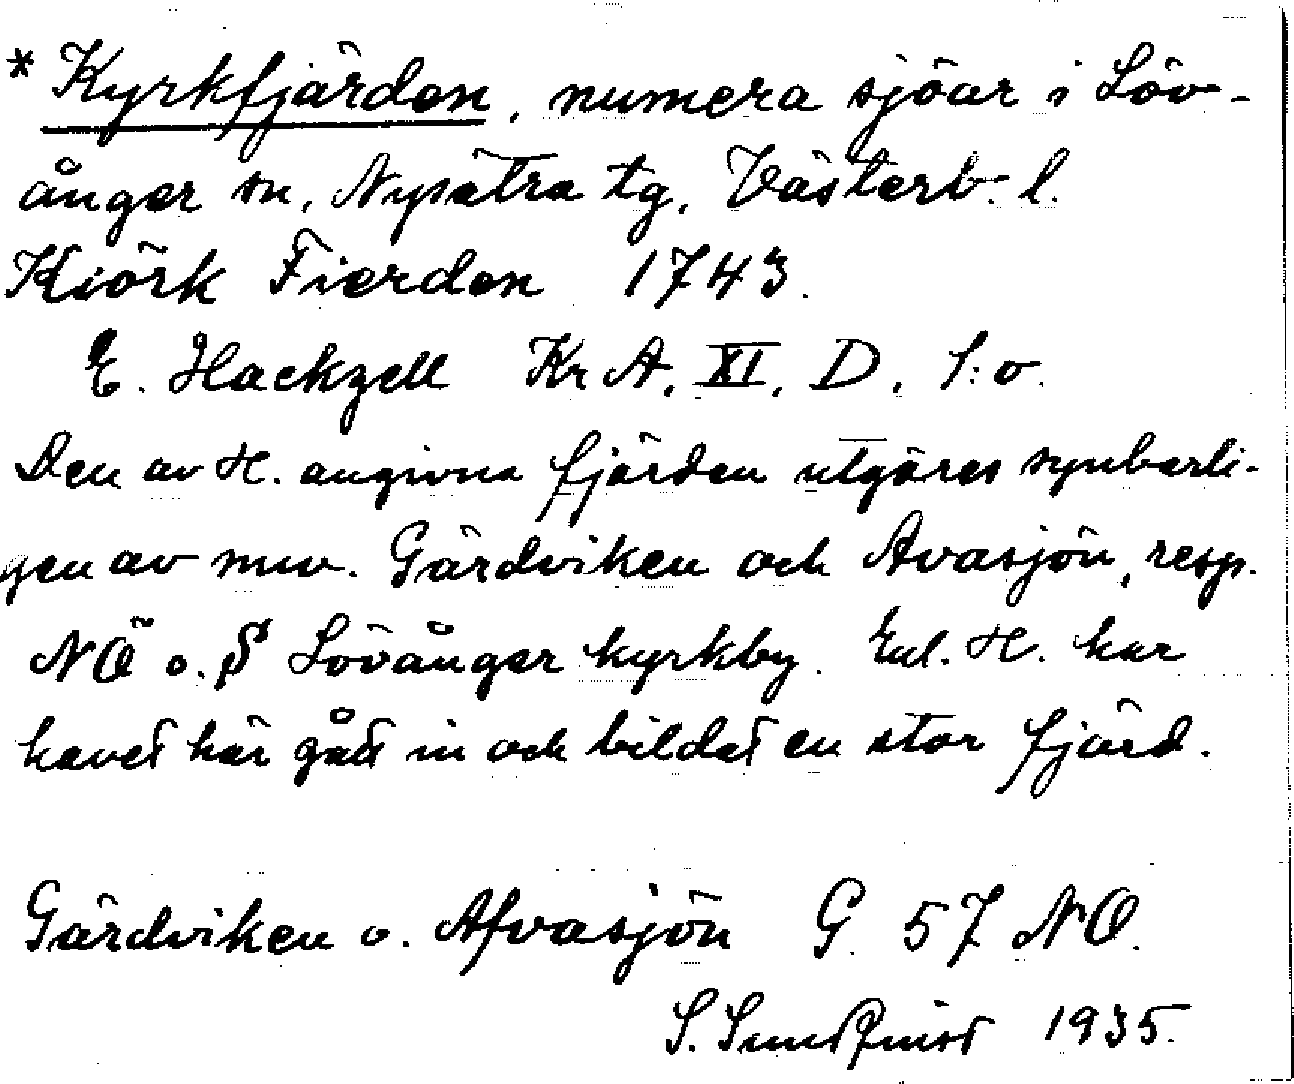 * Kyrkfjärden, numera sjöar i Löv-
ånger sn, Nysätra tg, Västerb. l.
Kiörk Fierden 1743.
E. Hackzell Kr A. XI. D. 1:o.
Den av H. angivna fjärden utgöres synbarli-
gen av nuv. Gärdviken och Avasjön, resp.
NÖ o. S Lövånger kyrkby. Enl. H. har
havet här gått in och bildat en stor fjärd.
Gärdviken o. Afvasjön G. 57 NO.
S. Sundqvist 1935.